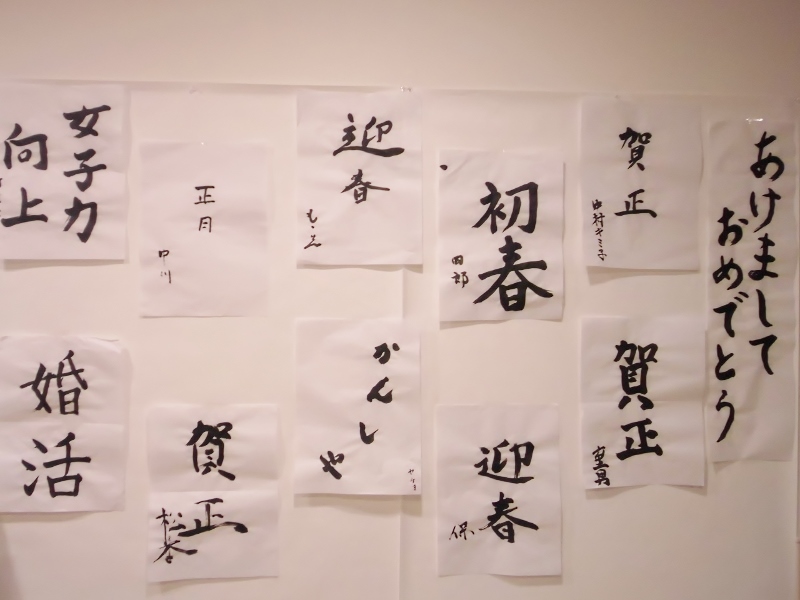 あけまして
おめでとう
賀正
田村キミ子
賀正
初春
四郎
迎春
保
迎春
かんしゃ
正月
中川
賀正
女子力
向上
婚活